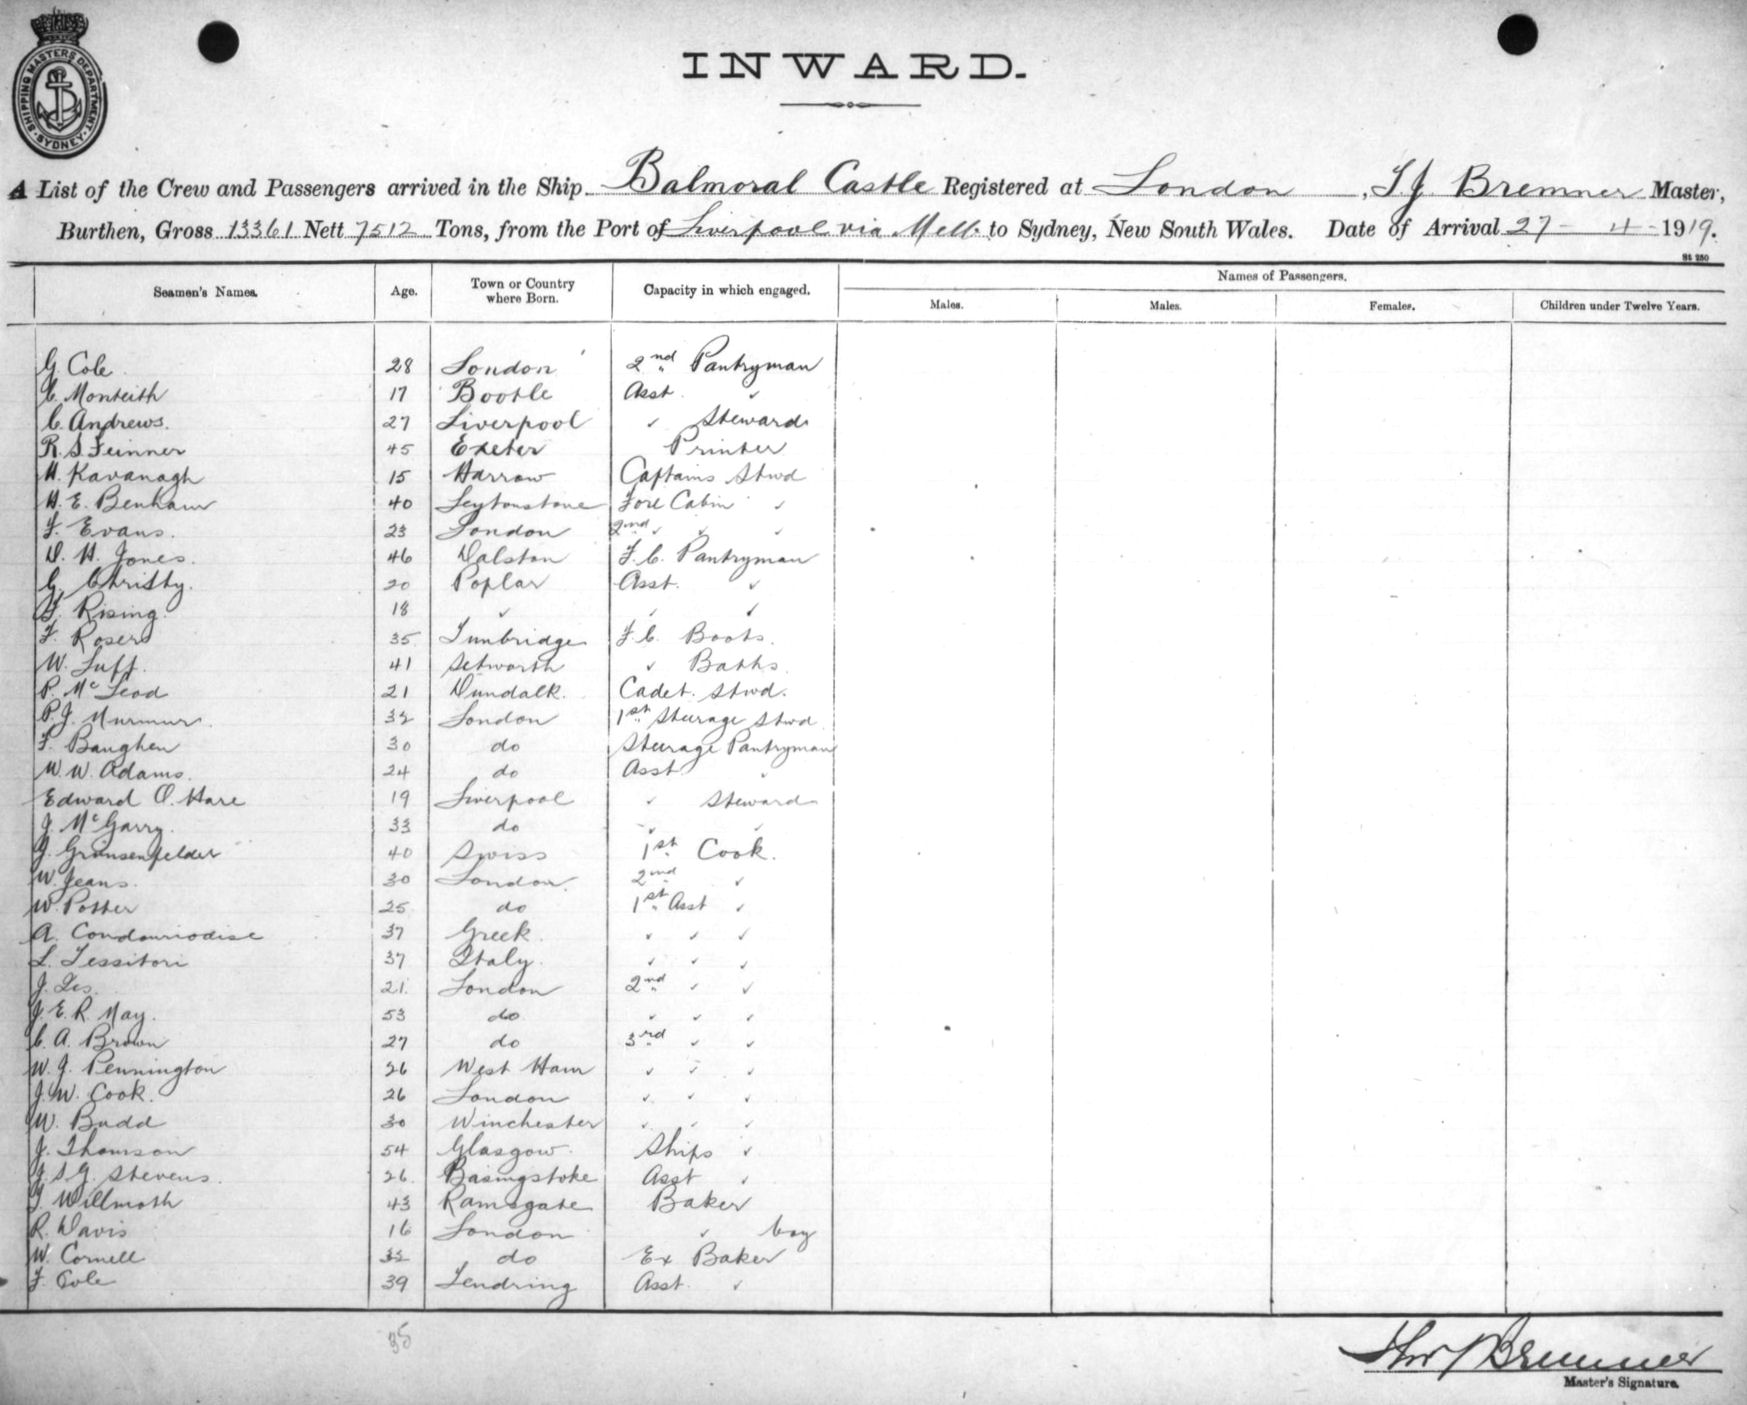 SHIPPING MASTERS DEPARTMENT SYDNEY
INWARD.
A List of the Crew and Passengers arrived in the Ship Balmoral Castle Registered at London, T.J. Bremner Master,
Burthen, Gross 13361 Nett 7512 Tons, from the Port of Liverpool via Melb. to Sydney, New South Wales. Date of Arrival 27 - 4 - 1919.
St 250
Seamen's Names. Age. Town or Country where Born. Capacity in which engaged. Names of Passengers.
Males. Males. Females. Children under Twelve Years.
G. Cole 28 London 2nd Pantryman
C. Monteith 17 Bootle Asst. ✓
C. Andrews. 27 Liverpool ✓ Steward
R. S. 45 Exeter Printer
M. Kavanagh 15 Harrow Captains Stwd
H. E. Benham 40 Leytonstone Fore Cabin ✓
F. Evans. 23 London 2nd ✓ ✓ ✓
D. H. Jones. 46 Dalston F. C. Pantryman
G. Christy. 20 Poplar Asst. ✓
F. Rising. 18 ✓ ✓ ✓
F. Rosers 35 Tunbridge F. C. Boots.
W. Luff. 41 ✓ Baths.
P. McLeod 21 Dundalk. Cadet. Stwd.
P. J. 32 London 1st Steerage Stwd
F. Baughen 30 do Steerage Pantryman
W. W. Adams. 24 do Asst ✓
Edward O. Hare 19 Liverpool ✓ Steward
J. McGarry. 33 do ✓ ✓
J. Grünsenfelder 40 Swiss 1st Cook.
W. Jeans. 30 London. 2nd ✓
W. Potter 25 do 1st Asst ✓
A. Condouriodise 37 Greek. ✓ ✓ ✓
L. Tessitori 37 Italy. ✓ ✓ ✓
J. 21. London 2nd ✓ ✓
J. E. R. May. 53 do ✓ ✓ ✓
C. A. Brown 27 do 3rd ✓ ✓
W. J. Pennington 26 West Ham ✓ ✓ ✓
J. W. Cook. 26 London ✓ ✓ ✓
W. Budd 30 Winchester ✓ ✓ ✓
J. Thomson 54 Glasgow. Ships ✓
J. S. G. Stevens. 26. Basingstoke Asst ✓
F. Willmoth 43 Ramsgate Baker
R. Davis 16 London ✓ boy
W. Cornell 32 do Ex Baker
F. Cole 39 Tendring Asst. ✓
35
Thos J Bremner
Master's Signature.